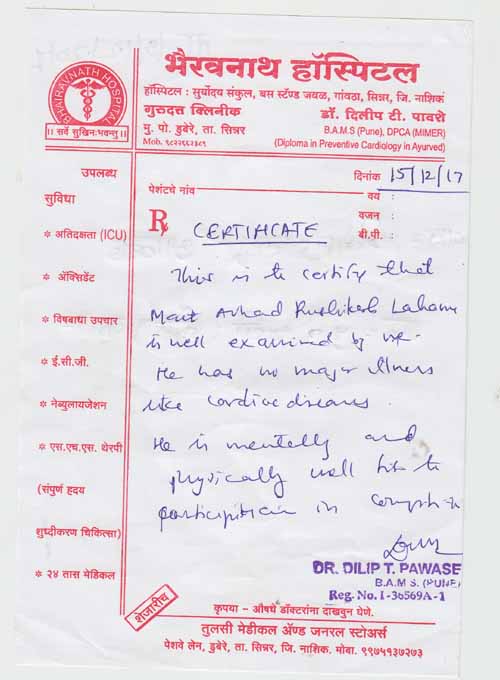 BHAIRAVNATH HOSPITAL
|| सर्वे सुखिनः भवन्तु ||
भैरवनाथ हॉस्पिटल
हॉस्पिटल : सुर्योदय संकुल, बस स्टॅण्ड जवळ, गांवठा, सिन्नर, जि. नाशिक
गुरुदत्त क्लिनीक
डॉ. दिलीप टी. पावशे
मु. पो. डुबेरे, ता. सिन्नर
B.A.M.S (Pune), DPCA (MIMER)
Mob. ९८२२६६२३८९
(Diploma in Preventive Cardiology in Ayurved)
दिनांक 15/12/17
पेशंटचे नांव
वय :
वजन :
बी.पी. :
उपलब्ध
सुविधा
* अतिदक्षता (ICU)
* ॲक्सिडेंट
* विषबाधा उपचार
* ई.सी.जी.
* नेब्युलायजेशन
* एस.एच.एस. थेरपी
(संपुर्ण हृदय
शुध्दीकरण चिकित्सा)
* २४ तास मेडिकल
Rx CERTIFICATE
This is to certify that
Avhad Rushikesh Lahanu
is well examined by me.
He has no major illness
like cardiac diseases.
He is mentally and
physically well fit to
participation in
DR. DILIP T. PAWASE
B.A.M.S. (PUNE)
Reg. No. I-36569A-1
शेजारीच
कृपया - औषधे डॉक्टरांना दाखवुन घेणे.
तुलसी मेडीकल ॲण्ड जनरल स्टोअर्स
पेशवे लेन, डुबेरे, ता. सिन्नर, जि. नाशिक. मोबा. ९९७५१३७२७३